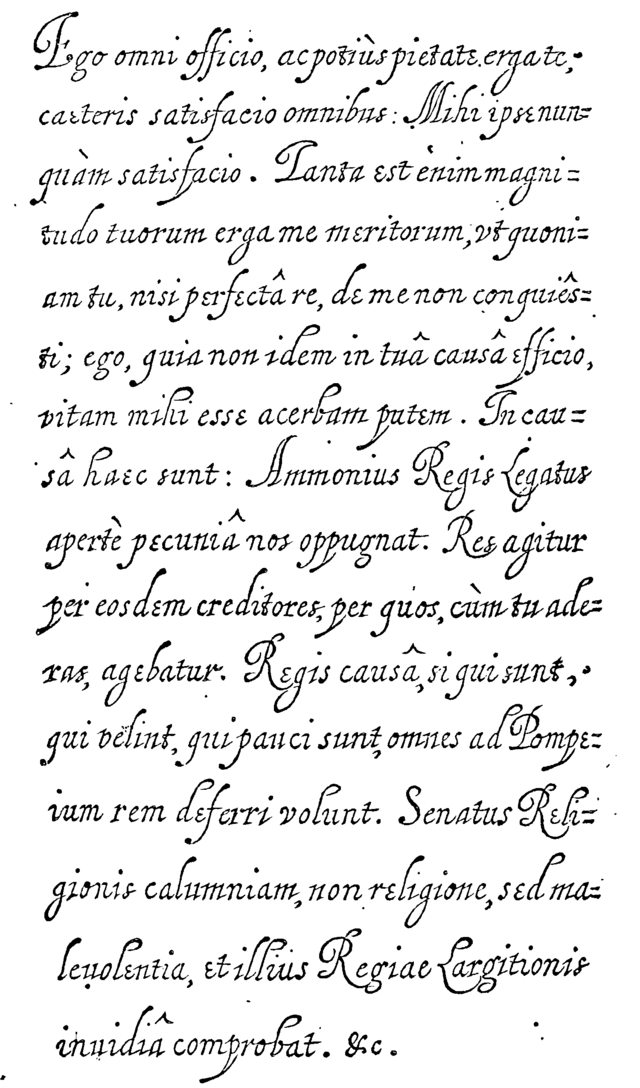 Ego omni officio, ac potiùs pietate erga te,
caeteris satisfacio omnibus: Mihi ipse nun=
quàm satisfacio. Tanta est ènim magni=
tudo tuorum erga me meritorum, vt quoni=
am tu, nisi perfectâ re, de me non conquiês=
ti; ego, quia non idem in tuâ causâ efficio,
vitam mihi esse acerbam putem. In cau=
sâ haec sunt: Ammonius Regis Legatus
apertè pecuniâ nos oppugnat. Res agitur
per eosdem creditores, per quos, cùm tu ade=
ras, agebatur. Regis causâ, si qui sunt,
qui velint, qui pauci sunt, omnes ad Pompe=
ium rem deferri volunt. Senatus Reli=
gionis calumniam, non religione, sed ma=
leuolentia, et illius Regiae Largitionis
inuidiâ comprobat. &c.